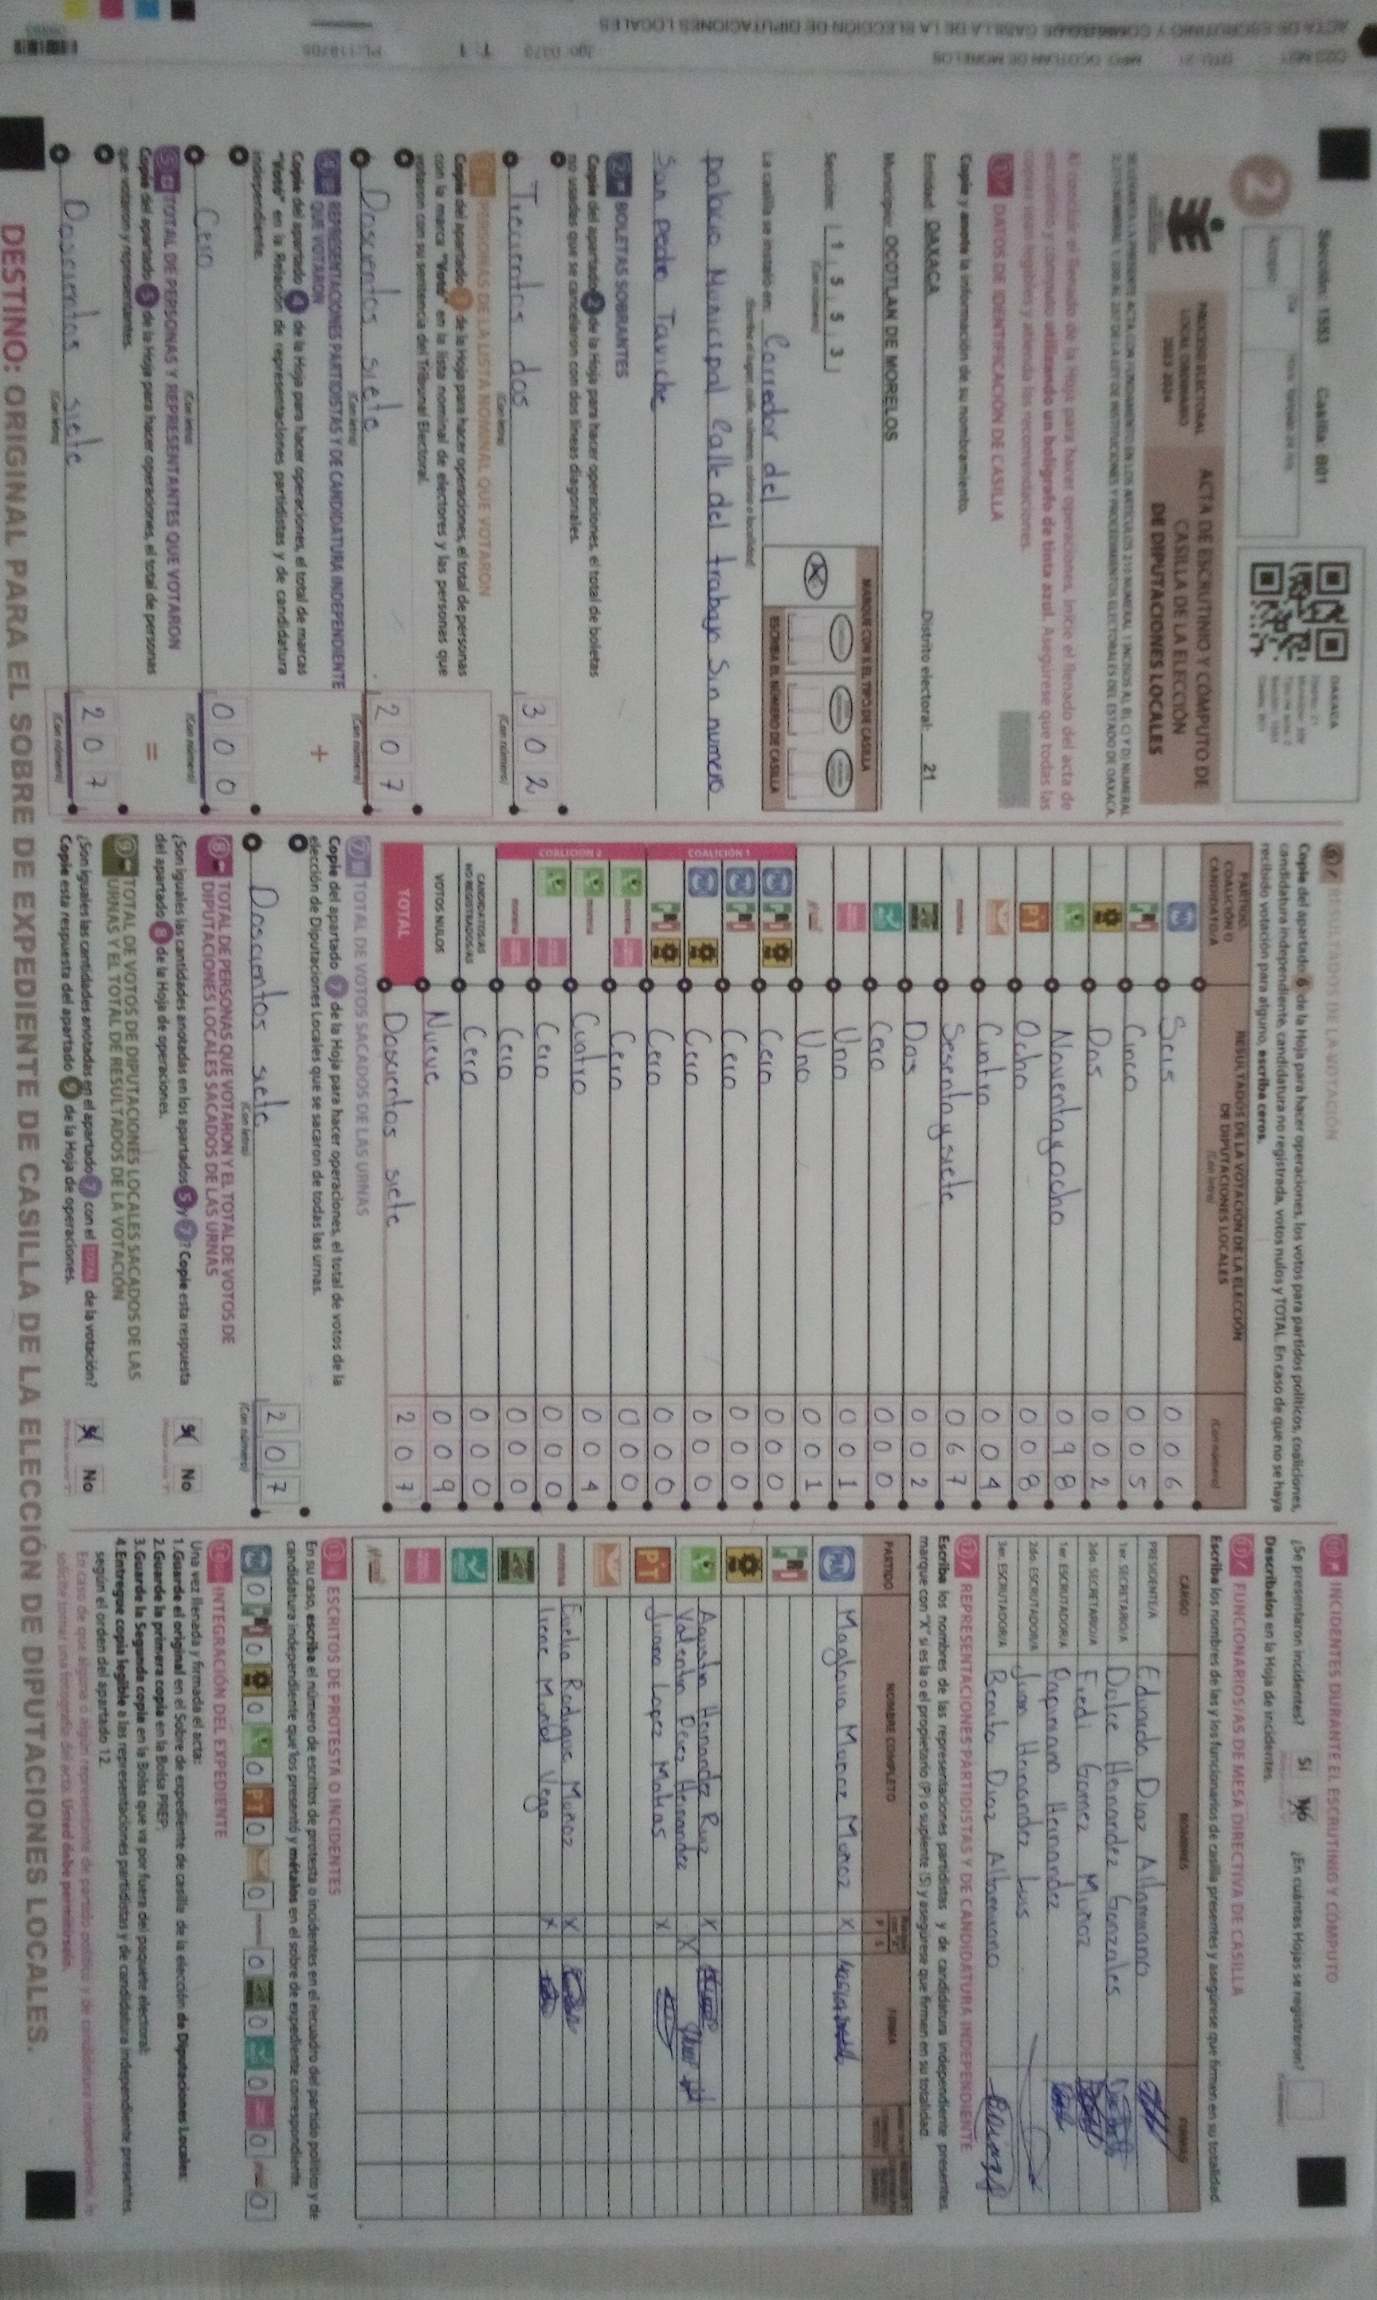 Sección: 1553 Casilla: B01
2
PROCESO ELECTORAL LOCAL ORDINARIO 2023-2024
ACTA DE ESCRUTINIO Y CÓMPUTO DE
CASILLA DE LA ELECCIÓN
DE DIPUTACIONES LOCALES
Al concluir el llenado de la Hoja para hacer operaciones, inicie el llenado del acta de
escrutinio y cómputo utilizando un bolígrafo de tinta azul. Asegúrese que todas las
copias sean legibles y atienda las recomendaciones.
1 DATOS DE IDENTIFICACIÓN DE CASILLA
Copie y anote la información de su nombramiento.
Entidad: OAXACA Distrito electoral: 21
Municipio: OCOTLÁN DE MORELOS
Sección: 1 5 5 3
(Con número)
MARQUE CON X EL TIPO DE CASILLA
ESCRIBA EL NÚMERO DE CASILLA
La casilla se instaló en: Corredor del
palacio Municipal Calle del trabajo Sin numero
San pedro Taviche
2 BOLETAS SOBRANTES
Copie del apartado 2 de la Hoja para hacer operaciones, el total de boletas
no usadas que se cancelaron con dos líneas diagonales.
Trecientos dos 302
(Con letra) (Con número)
3 PERSONAS DE LA LISTA NOMINAL QUE VOTARON
Copie del apartado 3 de la Hoja para hacer operaciones, el total de personas
con la marca "Votó" en la lista nominal de electores y las personas que
votaron con su sentencia del Tribunal Electoral.
Doscientos siete 207
(Con letra) (Con número)
4 REPRESENTACIONES PARTIDISTAS Y DE CANDIDATURA INDEPENDIENTE
QUE VOTARON +
Copie del apartado 4 de la Hoja para hacer operaciones, el total de marcas
"Votó" en la Relación de representaciones partidistas y de candidatura
independiente.
Cero 000
(Con letra) (Con número)
5 TOTAL DE PERSONAS Y REPRESENTANTES QUE VOTARON
Copie del apartado 5 de la Hoja para hacer operaciones, el total de personas
que votaron y representantes. =
Doscientos siete 207
(Con letra) (Con número)
6 RESULTADOS DE LA VOTACIÓN
Copie del apartado 6 de la Hoja para hacer operaciones, los votos para partidos políticos, coaliciones,
candidatura independiente, candidatura no registrada, votos nulos y TOTAL. En caso de que no se haya
recibido votación para alguno, escriba ceros.
PARTIDO, COALICIÓN O CANDIDATO/A
RESULTADOS DE LA VOTACIÓN DE LA ELECCIÓN
DE DIPUTACIONES LOCALES
(Con letra) (Con número)
Seis 006
Cinco 005
Dos 002
Noventa y ocho 098
Ocho 008
Cuatro 004
morena Sesenta y siete 067
Dos 002
Cero 000
Uno 001
Uno 001
COALICIÓN 1
Cero 000
Cero 000
Cero 000
Cero 000
COALICIÓN 2
Cero 000
Cuatro 004
Cero 000
Cero 000
CANDIDATOS/AS NO REGISTRADOS/AS Cero 000
VOTOS NULOS Nueve 009
TOTAL Doscientos siete 207
7 TOTAL DE VOTOS SACADOS DE LAS URNAS
Copie del apartado 7 de la Hoja para hacer operaciones, el total de votos de la
elección de Diputaciones Locales que se sacaron de todas las urnas.
Doscientos siete 207
(Con letra) (Con número)
8 TOTAL DE PERSONAS QUE VOTARON Y EL TOTAL DE VOTOS DE
DIPUTACIONES LOCALES SACADOS DE LAS URNAS
¿Son iguales las cantidades anotadas en los apartados 5 y 7? Copie esta respuesta
del apartado 8 de la Hoja de operaciones. Sí No
9 TOTAL DE VOTOS DE DIPUTACIONES LOCALES SACADOS DE LAS
URNAS Y EL TOTAL DE RESULTADOS DE LA VOTACIÓN
¿Son iguales las cantidades anotadas en el apartado 7 con el TOTAL de la votación?
Copie esta respuesta del apartado 9 de la Hoja de operaciones. Sí No
10 INCIDENTES DURANTE EL ESCRUTINIO Y CÓMPUTO
¿Se presentaron incidentes? Sí No ¿En cuántas Hojas se registraron?
Descríbalos en la Hoja de incidentes.
11 FUNCIONARIOS/AS DE MESA DIRECTIVA DE CASILLA
Escriba los nombres de las y los funcionarios de casilla presentes y asegúrese que firmen en su totalidad.
CARGO NOMBRES FIRMAS
PRESIDENTE/A Eduardo Diaz Altamirano
1er. SECRETARIO/A Dulce Hernandez Gonzales
2do. SECRETARIO/A Fredi Gomez Muñoz
1er. ESCRUTADOR/A Papiniano Hernandez
2do. ESCRUTADOR/A Juan Hernandez Luis
3er. ESCRUTADOR/A Benito Diaz Altamirano
12 REPRESENTACIONES PARTIDISTAS Y DE CANDIDATURA INDEPENDIENTE
Escriba los nombres de las representaciones partidistas y de candidatura independiente presentes,
marque con "X" si es la o el propietario (P) o suplente (S) y asegúrese que firmen en su totalidad.
PARTIDO NOMBRE COMPLETO FIRMA
Magdalena Muñoz Muñoz X
Agustin Hernandez Ruiz X
Valentin Perez Hernandez X
Juana Lopez Matias X
morena Evelia Rodriguez Muñoz X
Irene Muñoz Vega X
13 ESCRITOS DE PROTESTA O INCIDENTES
En su caso, escriba el número de escritos de protesta o incidentes en el recuadro del partido político y de
candidatura independiente que los presentó y métalos en el sobre de expediente correspondiente.
0 0 0 0 0 0 0 0 0 0 0
14 INTEGRACIÓN DEL EXPEDIENTE
Una vez llenada y firmada el acta:
1. Guarde el original en el Sobre de expediente de casilla de la elección de Diputaciones Locales;
2. Guarde la primera copia en la Bolsa PREP;
3. Guarde la Segunda copia en la Bolsa que va por fuera del paquete electoral;
4. Entregue copia legible a las representaciones partidistas y de candidatura independiente presentes,
según el orden del apartado 12.
DESTINO: ORIGINAL PARA EL SOBRE DE EXPEDIENTE DE CASILLA DE LA ELECCIÓN DE DIPUTACIONES LOCALES.